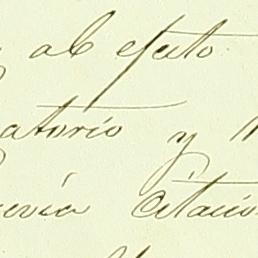 al efecto
atorio y
revia citacio